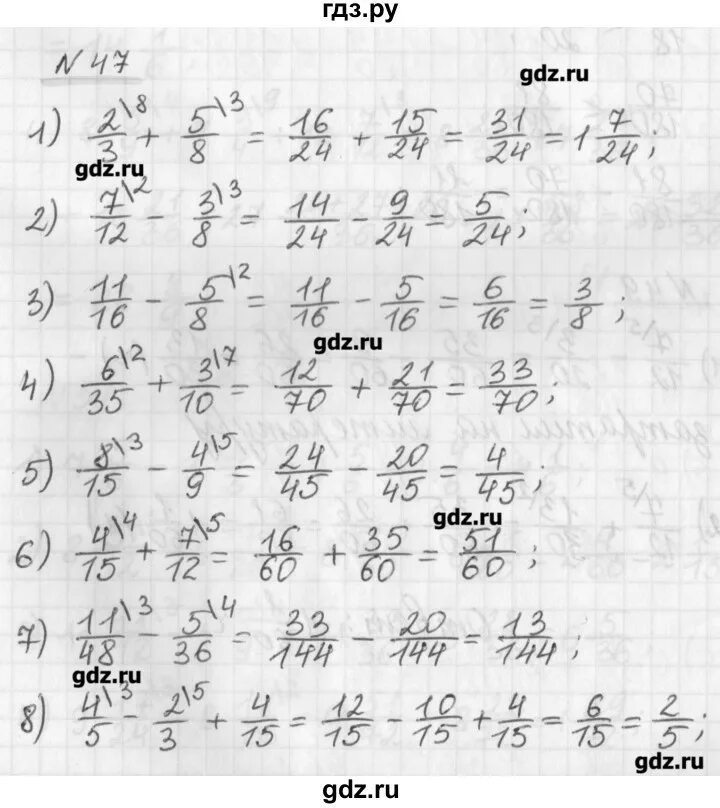 гдз.ру
N 47
gdz.ru
1) 2/3\8 + 5/8\3 = 16/24 + 15/24 = 31/24 = 1 7/24;
gdz.ru
2) 7/12\2 - 3/8\3 = 14/24 - 9/24 = 5/24;
3) 11/16 - 5/8\2 = 11/16 - 5/16 = 6/16 = 3/8;
gdz.ru
4) 6/35\2 + 3/10\7 = 12/70 + 21/70 = 33/70;
5) 8/15\3 - 4/9\5 = 24/45 - 20/45 = 4/45;
gdz.ru
6) 4/15\4 + 7/12\5 = 16/60 + 35/60 = 51/60;
7) 11/48\3 - 5/36\4 = 33/144 - 20/144 = 13/144;
gdz.ru
8) 4/5\3 - 2/3\5 + 4/15 = 12/15 - 10/15 + 4/15 = 6/15 = 2/5;
gdz.ru
gdz.ru